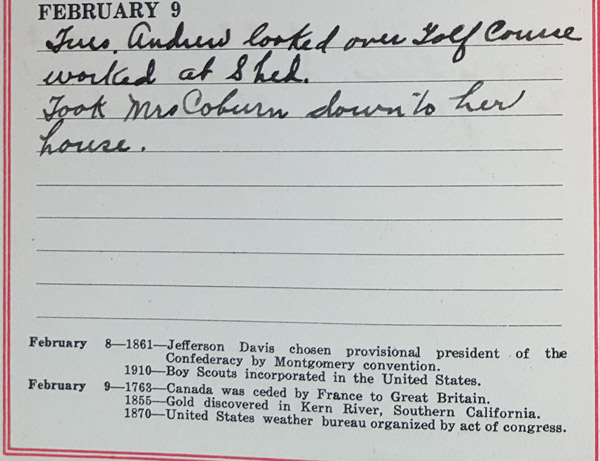 FEBRUARY 9
Tues. Andrew looked over Golf Course
worked at Shed.
Took Mrs Coburn down to her
house.
February 8—1861—Jefferson Davis chosen provisional president of the
Confederacy by Montgomery convention.
1910—Boy Scouts incorporated in the United States.
February 9—1763—Canada was ceded by France to Great Britain.
1855—Gold discovered in Kern River, Southern California.
1870—United States weather bureau organized by act of congress.